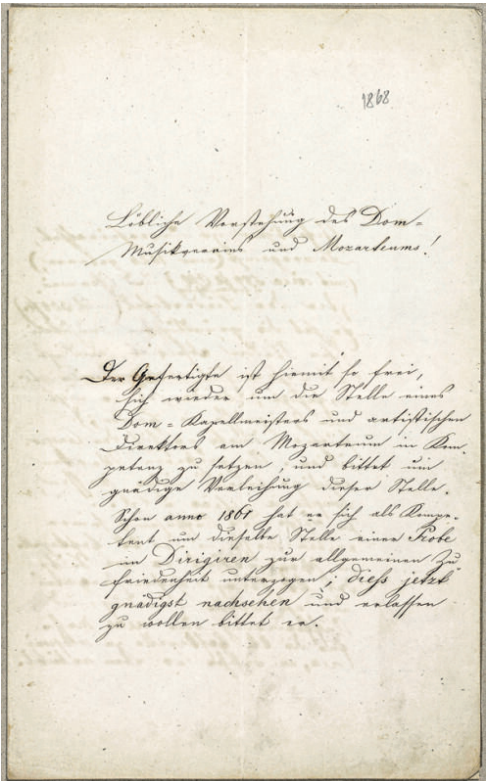 1868
Löbliche Vorstehung des Dom-
Musikvereins und Mozarteums!
Der Gefertigte ist hiemit so frei,
sich wieder um die Stelle eines
Dom-Kapellmeisters und artistischen
Direktors am Mozarteum in Kom-
petenz zu setzen, und bittet um
gnädige Verleihung dieser Stelle.
Schon anno 1861 hat er sich als Kompe-
tent um dieselbe Stelle einer Probe
im Dirigiren zur allgemeinen Zu
friedenheit unterzogen; diess jetzt
gnädigst nachsehen und erlassen
zu wollen bittet er.